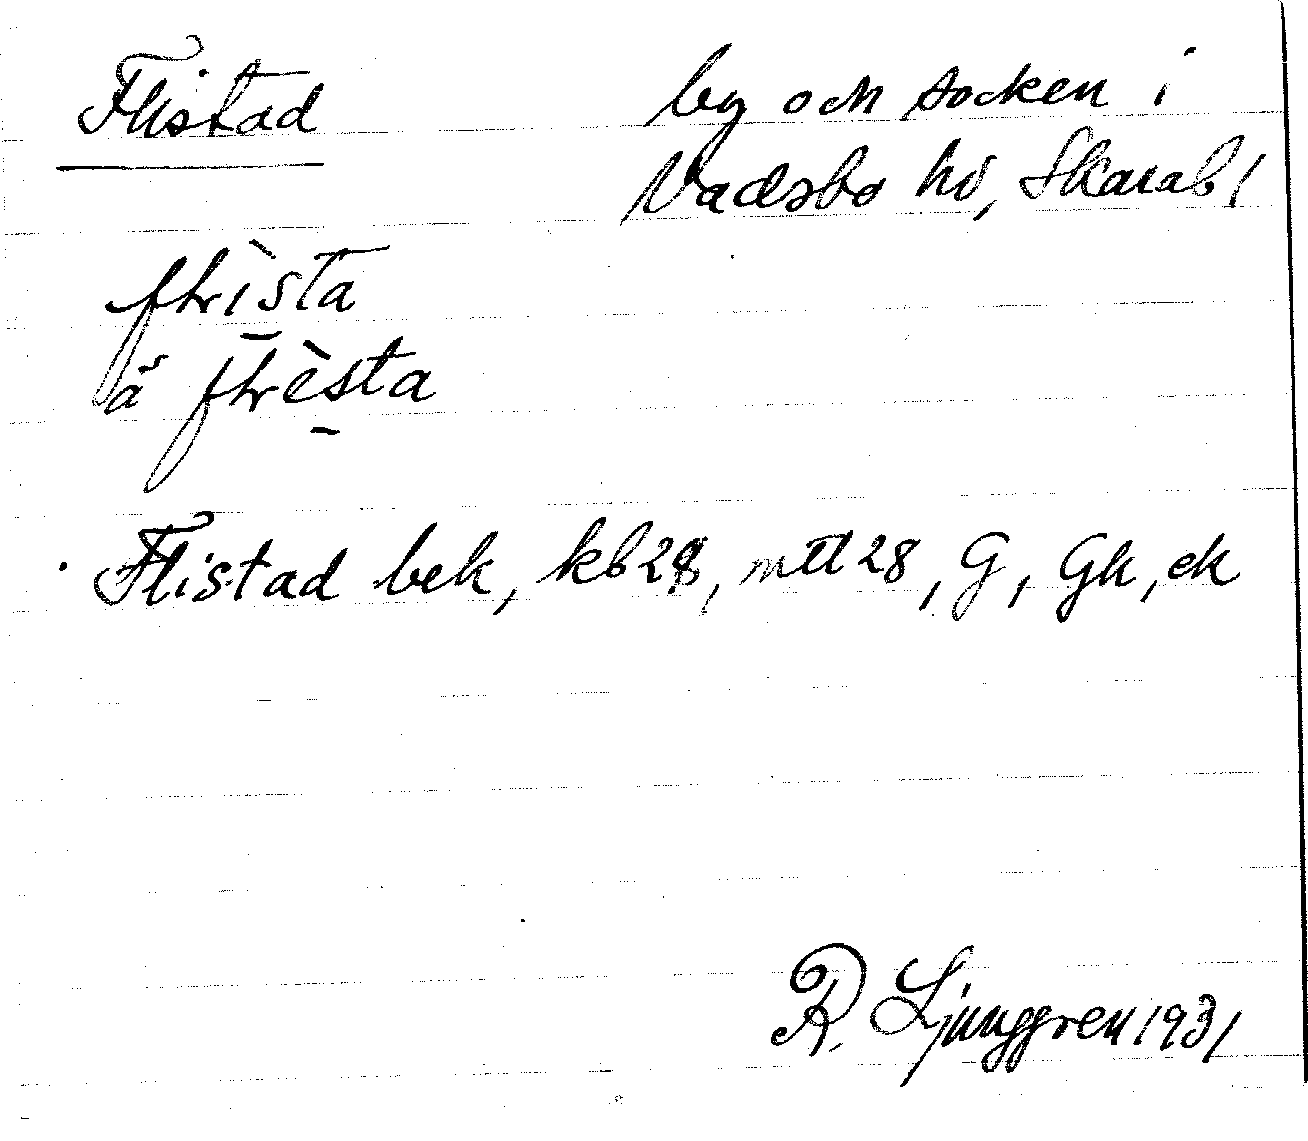 Flistad
by och socken i
Vadsbo hd, Skarab l
flrìsta
å flrèsta
Flistad bek, kb 28, mtl 28, G, Gk, ek
R. Ljunggren 1931